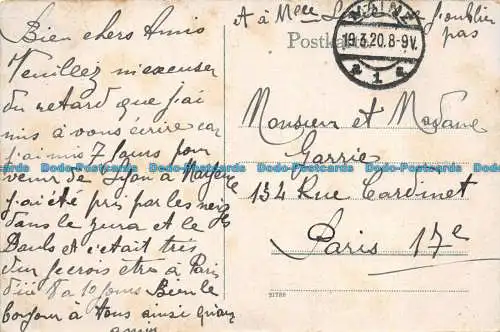 et à Melle
pas
Postkarte
MAINZ
19.3.20.8-9V.
* 1 *
Bien chers Amis
Veuillez m'excuser
du retard que j'ai
mis à vous écrire car
j'ai mis 7 jours pour
venir de Lyon à Mayence
j'ai été pris par les neiges
dans le Jura et le
Doubs et c'était très
dur je crois être à Paris
d'ici 8 à 10 jours Bien le
bonjour à tous ainsi qu'au
Monsieur et Madame
Garrié
134 Rue Cardinet
Paris 17e
Dodo-Postcards Dodo-Postcards Dodo-Postcards Dodo-Postcards Dodo-Postcards